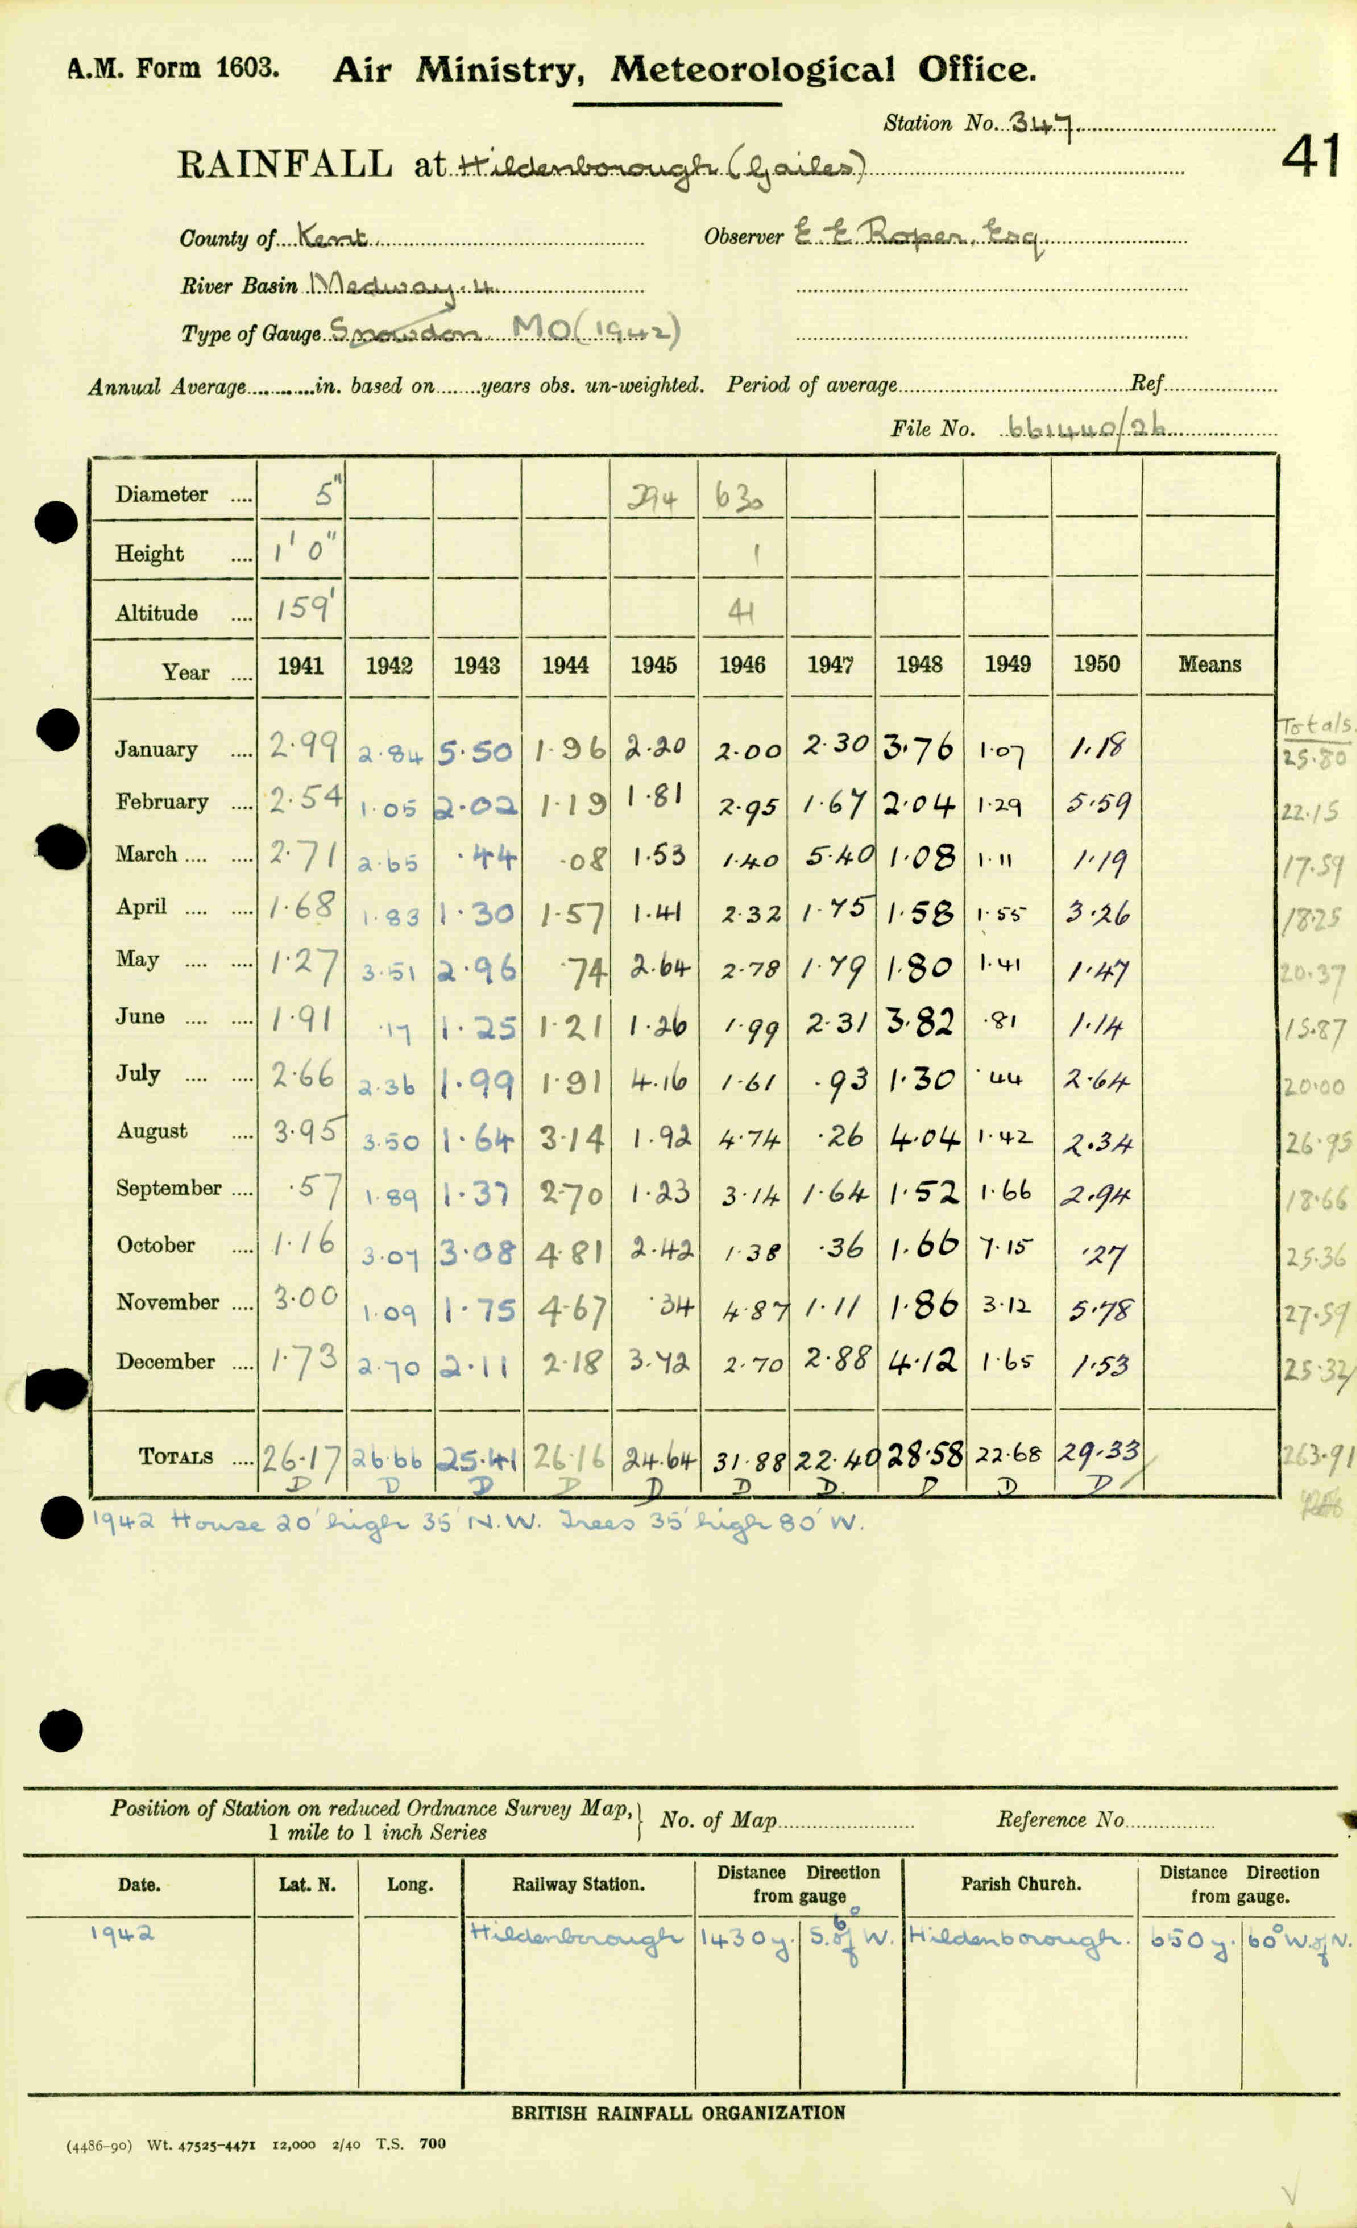 A.M. Form 1603. Air Ministry, Meteorological Office.
Station No. 347
41
RAINFALL at Hildenborough (Gailes)
County of Kent Observer E. E Roper, Esq
River Basin Medway. 4
Type of Gauge Snowdon MO (1942)
Annual Average in. based on years obs. un-weighted. Period of average Ref.
File No. 661440/26
Diameter .... 5" 294 630
Height .... 1' 0" 1
Altitude .... 159' 41
Year .... 1941 1942 1943 1944 1945 1946 1947 1948 1949 1950 Means
Totals.
January .... 2.99 2.84 5.50 1.96 2.20 2.00 2.30 3.76 1.07 1.18 25.80
February .... 2.54 1.05 2.02 1.19 1.81 2.95 1.67 2.04 1.29 5.59 22.15
March .... .... 2.71 2.65 .44 .08 1.53 1.40 5.40 1.08 1.11 1.19 17.59
April .... .... 1.68 1.83 1.30 1.57 1.41 2.32 1.75 1.58 1.55 3.26 18.25
May .... .... 1.27 3.51 2.96 .74 2.64 2.78 1.79 1.80 1.41 1.47 20.37
June .... .... 1.91 .17 1.25 1.21 1.26 1.99 2.31 3.82 .81 1.14 15.87
July .... .... 2.66 2.36 1.99 1.91 4.16 1.61 .93 1.30 .44 2.64 20.00
August .... 3.95 3.50 1.64 3.14 1.92 4.74 .26 4.04 1.42 2.34 26.95
September .... .57 1.89 1.37 2.70 1.23 3.14 1.64 1.52 1.66 2.94 18.66
October .... 1.16 3.07 3.08 4.81 2.42 1.38 .36 1.66 7.15 .27 25.36
November .... 3.00 1.09 1.75 4.67 .34 4.87 1.11 1.86 3.12 5.78 27.59
December .... 1.73 2.70 2.11 2.18 3.72 2.70 2.88 4.12 1.65 1.53 25.32
TOTALS .... 26.17 26.66 25.41 26.16 24.64 31.88 22.40 28.58 22.68 29.33 263.91
D D D D D D D. D D D
1942 House 20' high 35' N.W. Trees 35' high 80' W.
Position of Station on reduced Ordnance Survey Map, } No. of Map Reference No
1 mile to 1 inch Series
Date. Lat. N. Long. Railway Station. Distance Direction from gauge Parish Church. Distance Direction from gauge.
1942 Hildenborough 1430y. 6° S. of W. Hildenborough. 650y. 60° W. of N.
BRITISH RAINFALL ORGANIZATION
(4486-90) Wt. 47525-4471 12,000 2/40 T.S. 700